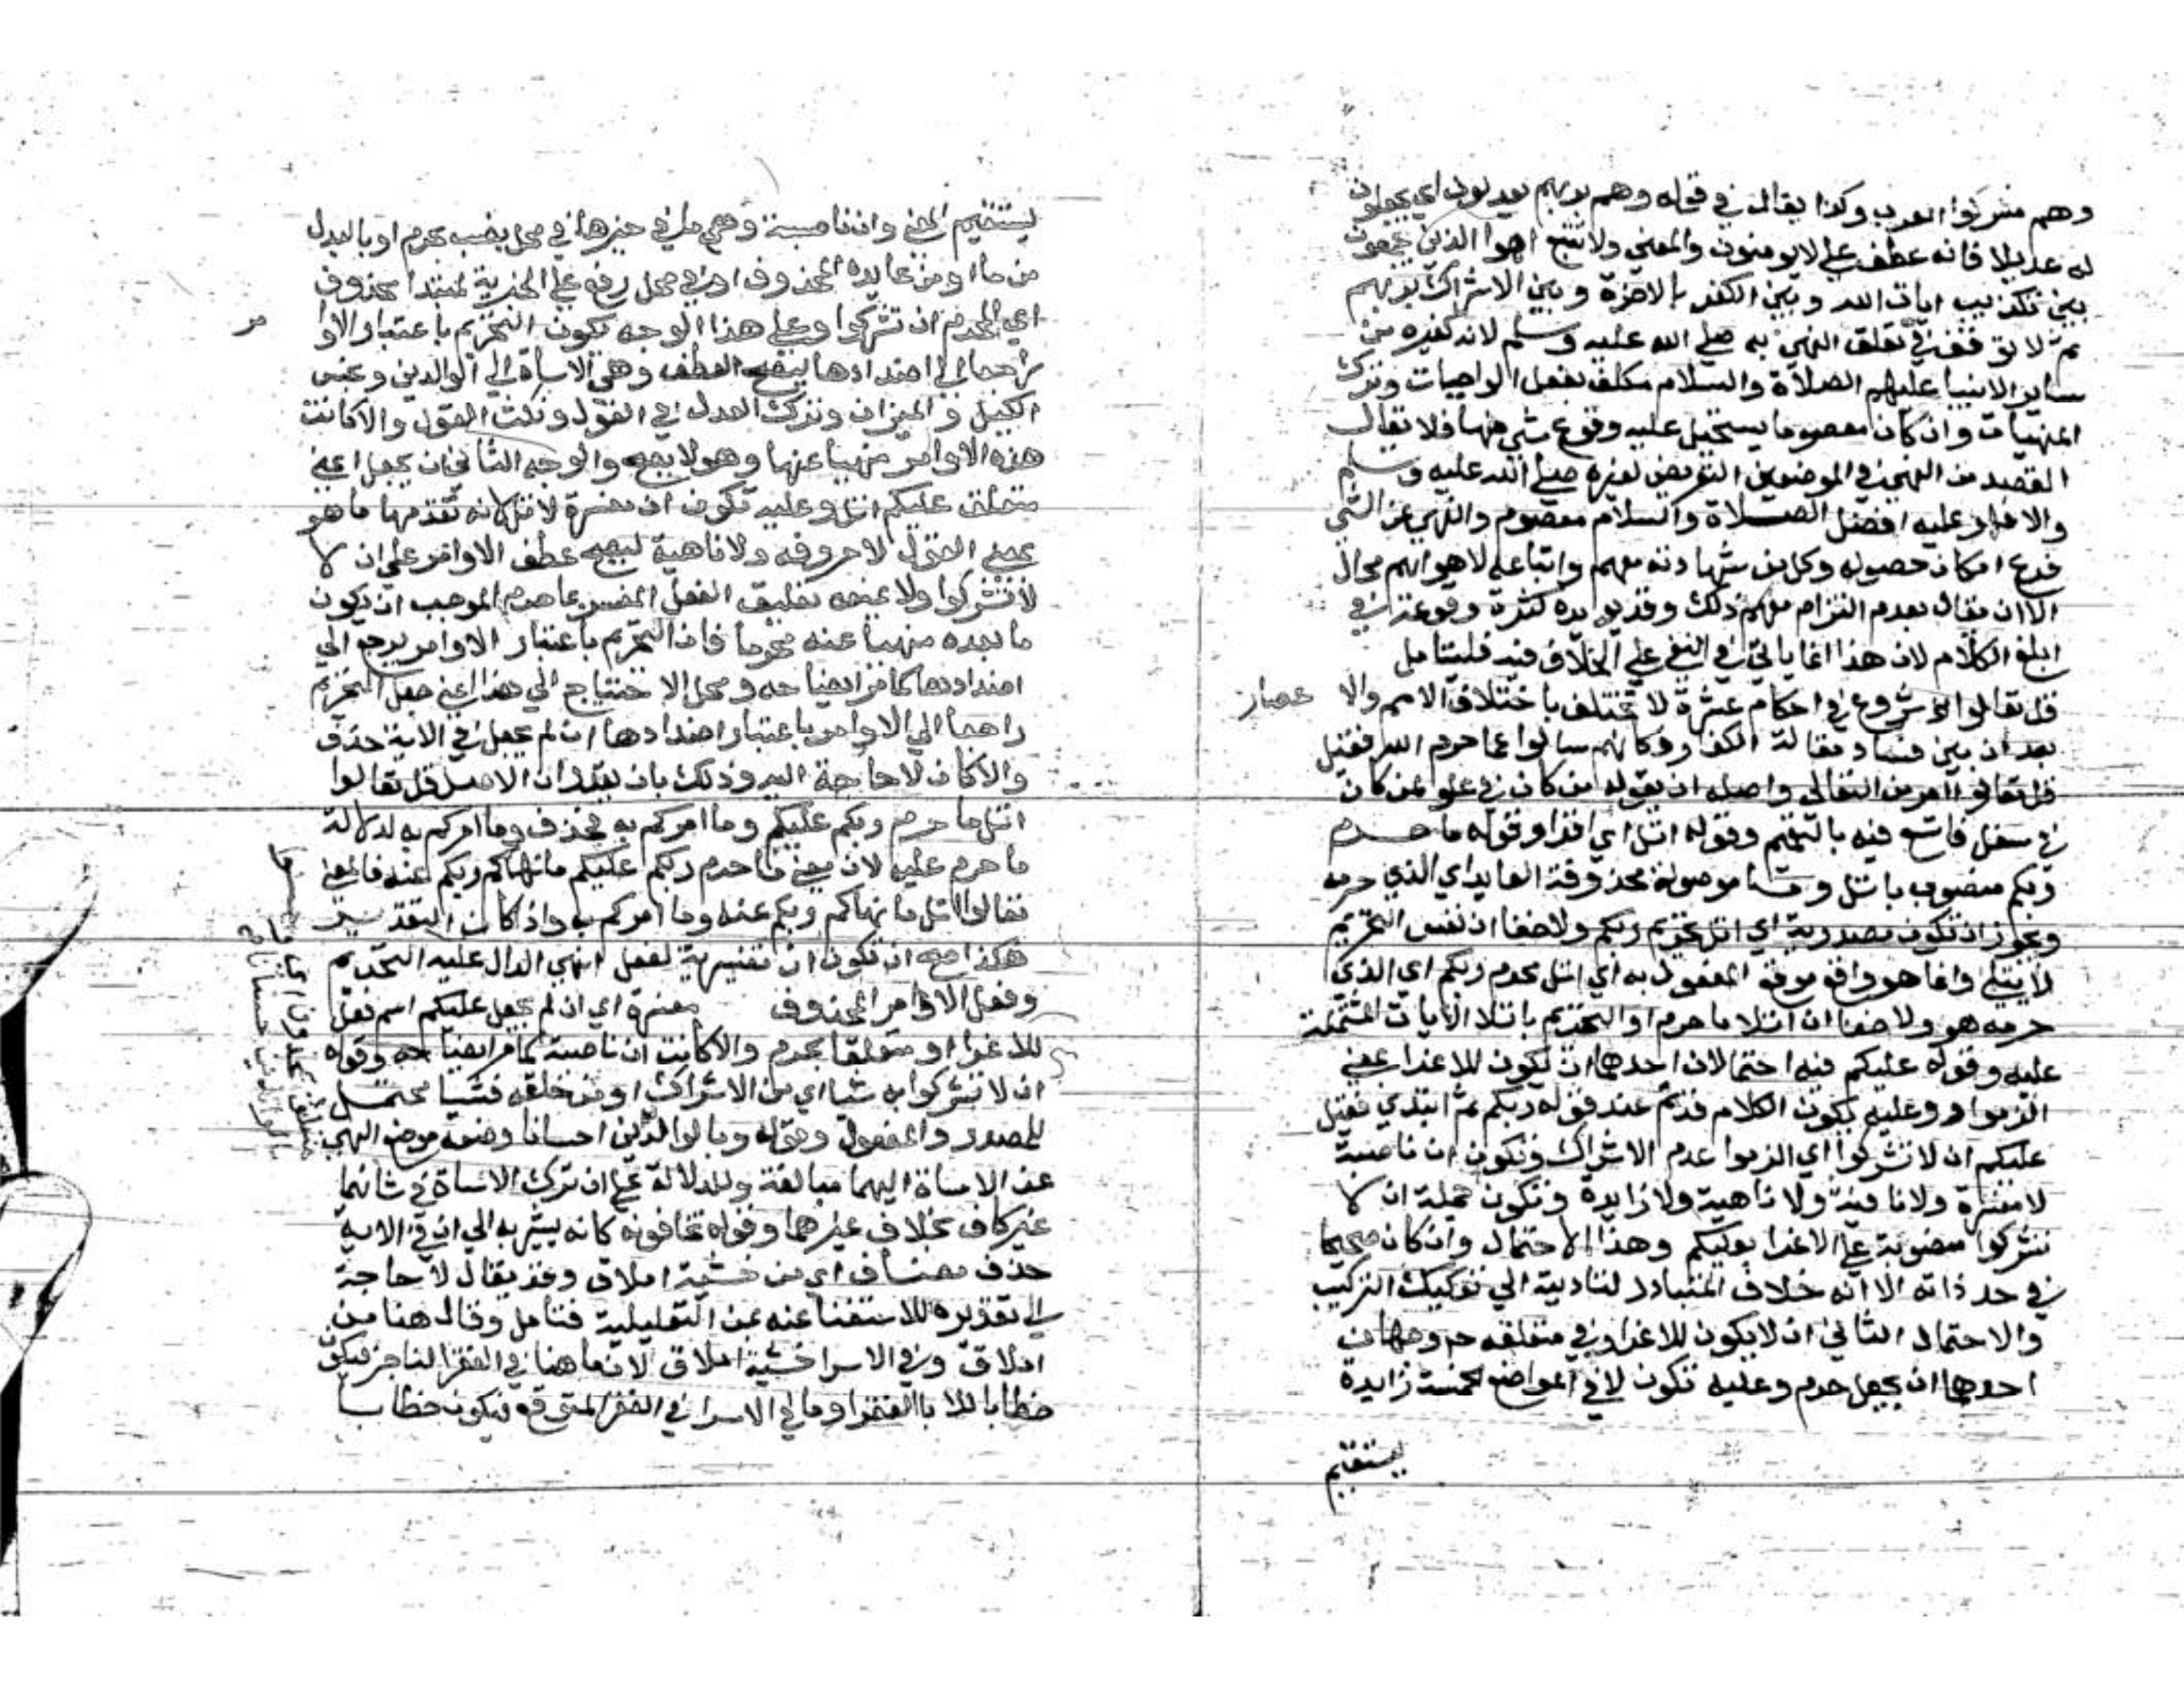 وهم مشركوا العرب وكذا يقال في قوله وهم بربهم يعدلون اي يجعلون
له عديلا فانه عطف علي لا يومنون والمعني ولا تتبع اهوا الذين يجمعون
بين تكذيب ايات الله وبين الكفر بالاخرة وبين الاشراك بربهم
ثم لا توقف في تعلق النهي به صلي الله عليه وسلم لانه كغيره من
ساير الانبيا عليهم الصلاة والسلام مكلف بفعل الواجبات وترك
المنهيات وان كان معصوما يستحيل عليه وقوع شي منها فلا يقال
القصد من النهي في الموضعين التعريض لغيره صلي الله عليه وسلم
والا فهو عليه افضل الصلاة والسلام معصوم والنهي عن الشي
فرع امكان حصوله وكل من شهادته معهم واتباعه لاهوايهم محال
الا ان يقال بعدم التزام ذلك وقد يويده كثرة وقوعه في
ابلغ الكلام لان هذا انما ياتي في النفي علي الخلاف فيه فليتامل
قل تعالوا الخ شروع في احكام عشرة لا تختلف باختلاف الامم والا عصار
بعد ان بين فساد مقالة الكفار وكانهم سالوا عما حرم الله فقيل
قل تعالوا امر من التعالي واصله ان يقوله من كان في علو لمن كان
في سفل فاتسع فيه بالتعميم وقوله اتل اي اقرا وقوله ما حرم
ربكم منصوب باتل وما موصولة محذوفة العايد اي الذي حرمه
ويجوز ان تكون مصدرية اي اتل تحريم ربكم ولا خفا ان نفس التحريم
لا يتلي وانما هو واقع موقع المفعول به اي اتل محرم ربكم اي الذي
حرمه هو ولا خفا ان اتلا ما حرم او التحريم باتلا الايات المشتملة
عليه وقوله عليكم فيه احتمالان احدهما ان يكون للاغرا بمعني
الزموا وعليه يكون الكلام قد تم عند قوله ربكم ثم ابتدي فقيل
عليكم ان لا تشركوا اي الزموا عدم الاشراك وتكون ان ناصبة
لا مفسرة ولا نافية ولا ناهية ولا زايدة وتكون جملة ان لا
تشركوا منصوبة علي الاغرا بعليكم وهذا الاحتمال وان كان صحيحا
في حد ذاته الا انه خلاف المتبادر لتاديته الي تفكيك التركيب
والاحتمال الثاني ان لا يكون للاغرا وفي متعلقه ح وجهان
احدهما ان يجعل حرم وعليه تكون لا في المواضع الخمسة زايدة
ليستقيم
ليستقيم المعني وان ناصبة وهي وما في حيزها في محل نصب بحرم او بالبدل
من ما او من عايده المحذوف او في محل رفع علي الخبرية لمبتدا محذوف
اي المحرم ان تشركوا وعلي هذا الوجه يكون التحريم باعتبار الاوا مر
راجعا الي اضدادها ليصح العطف وهي الاساة الي الوالدين وبخس
الكيل والميزان وترك العدل في القول ونكث القول والا كانت
هذه الاوامر منهيا عنها وهو لا يصح والوجه الثاني ان يجعل اعني
متعلق عليكم اتل وعليه تكون ان مفسرة لاتل لانه تقدمها ما هو
بمعني القول لا حروفه ولا ناهية ليصح عطف الاوامر علي ان لا
لا تشركوا ولا يمنعه تعليق الفعل المفسر بما حرم الموجب ان يكون
ما بعده منهيا عنه محرما فان التحريم باعتبار الاوامر يرجع الي
اضدادها كما مر ايضاحه ومحل الاحتياج الي هذا اعني جعل التحريم
راجعا الي الاوامر باعتبار اضدادها ان لم يجعل في الاية حذف
والا كان لا حاجة اليه وذلك بان يقدر ان الاصل قل تعالوا
اتل ما حرم ربكم عليكم وما امركم به فحذف وما امركم به لدلالة
ما حرم عليه لان معني ما حرم ربكم عليكم ما نهاكم ربكم عنه فالمعني
تعالوا اتل ما نهاكم ربكم عنه وما امركم به واذا كان التقدير
هكذا صح ان تكون ان تفسيرية لفعل النهي الدال عليه التحريم
وفعل الاوامر المحذوف مفسرة اي ان لم يجعل عليكم اسم فعل
للاغرا او متعلقا بحرم والا كانت ان ناصبة كما مر ايضاحه وقوله
ان لا تشركوا به شيا اي من الاشراك او من خلقه فشيا محتمل
للمصدر والمفعول وقوله وبالوالدين احسانا وضعه موضع النهي
عن الاساة اليهما مبالغة وللدلالة علي ان ترك الاساة في شانهما
غير كاف بخلاف غيرهما وقوله تخافونه كانه يشير به الي ان في الاية
حذف مضاف اي من خشية املاق وقد يقال لا حاجة
الي تقديره للاستغنا عنه بمن التعليلية فتامل وقال هنا من
املاق وفي الاسرا خشية املاق لان ما هنا في الفقر الناجز فيكون
خطابا للابا الفقرا وما في الاسرا في الفقر المتوقع فيكون خطابا